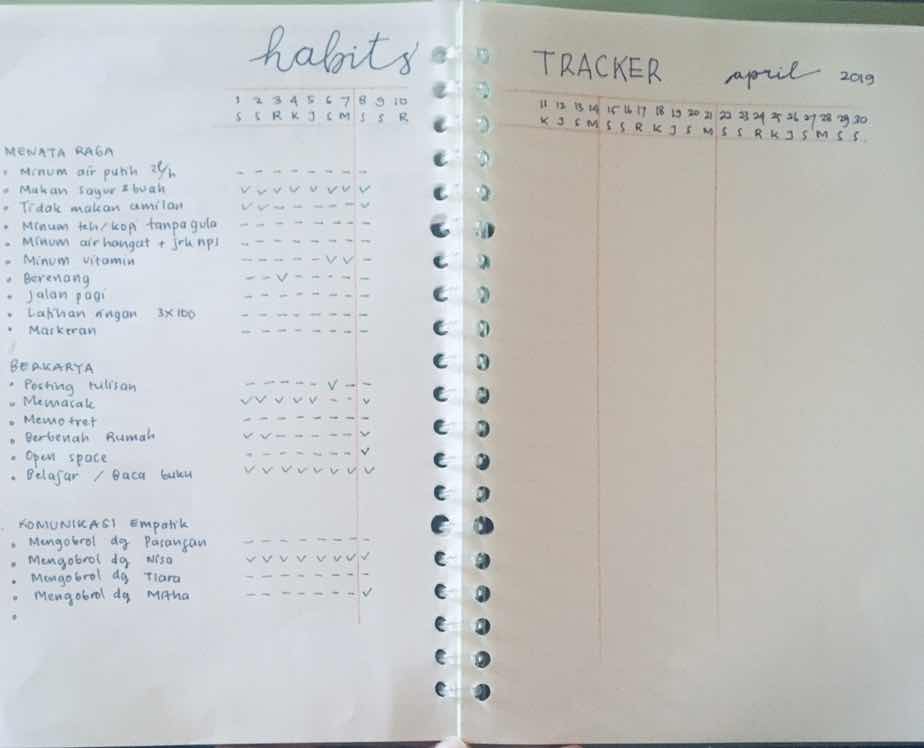 habits TRACKER april 2019
1 2 3 4 5 6 7 8 9 10 11 12 13 14 15 16 17 18 19 20 21 22 23 24 25 26 27 28 29 30
S S R K J S M S S R K J S M S S R K J S M S S R K J S M S S
MENATA RAGA
• Minum air putih 2l/h
• Makan sayur & buah
• Tidak makan camilan
• Minum teh/kopi tanpa gula
• Minum air hangat + jrk nps
• Minum vitamin
• Berenang
• Jalan pagi
• Latihan ringan 3x100
• Maskeran
BERKARYA
• Posting tulisan
• Memasak
• Memotret
• Berbenah Rumah
• Open space
• Belajar / Baca buku
KOMUNIKASI Empatik
• Mengobrol dg Pasangan
• Mengobrol dg Nisa
• Mengobrol dg Tiara
• Mengobrol dg